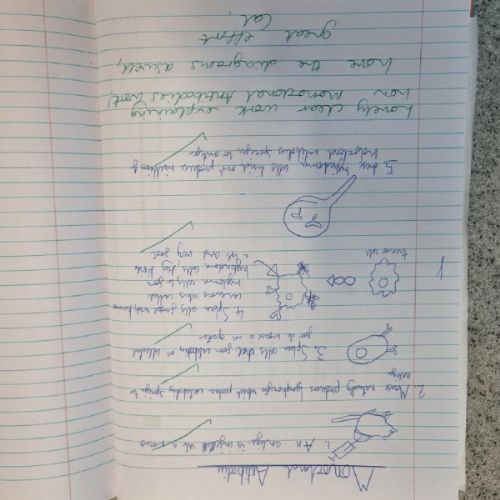 Monoclonal Antibodies
1. An antigen is injected into a mouse
2. Mouse naturally produces lymphocytes which produce antibodies specific to
antigen
3. Spleen cells that form antibody are collected
4. Spleen cells
cancerous cells called
myeloma cells to form
hybridoma cells, they divide
a lot and very fast
tumour cells
5. hybridoma cells divide and produce millions of
monoclonal antibodies specific to antigen
Lovely clear work explaining
how Monoclonal Antibodies work!
love the diagrams aswell,
great effort
Cal.